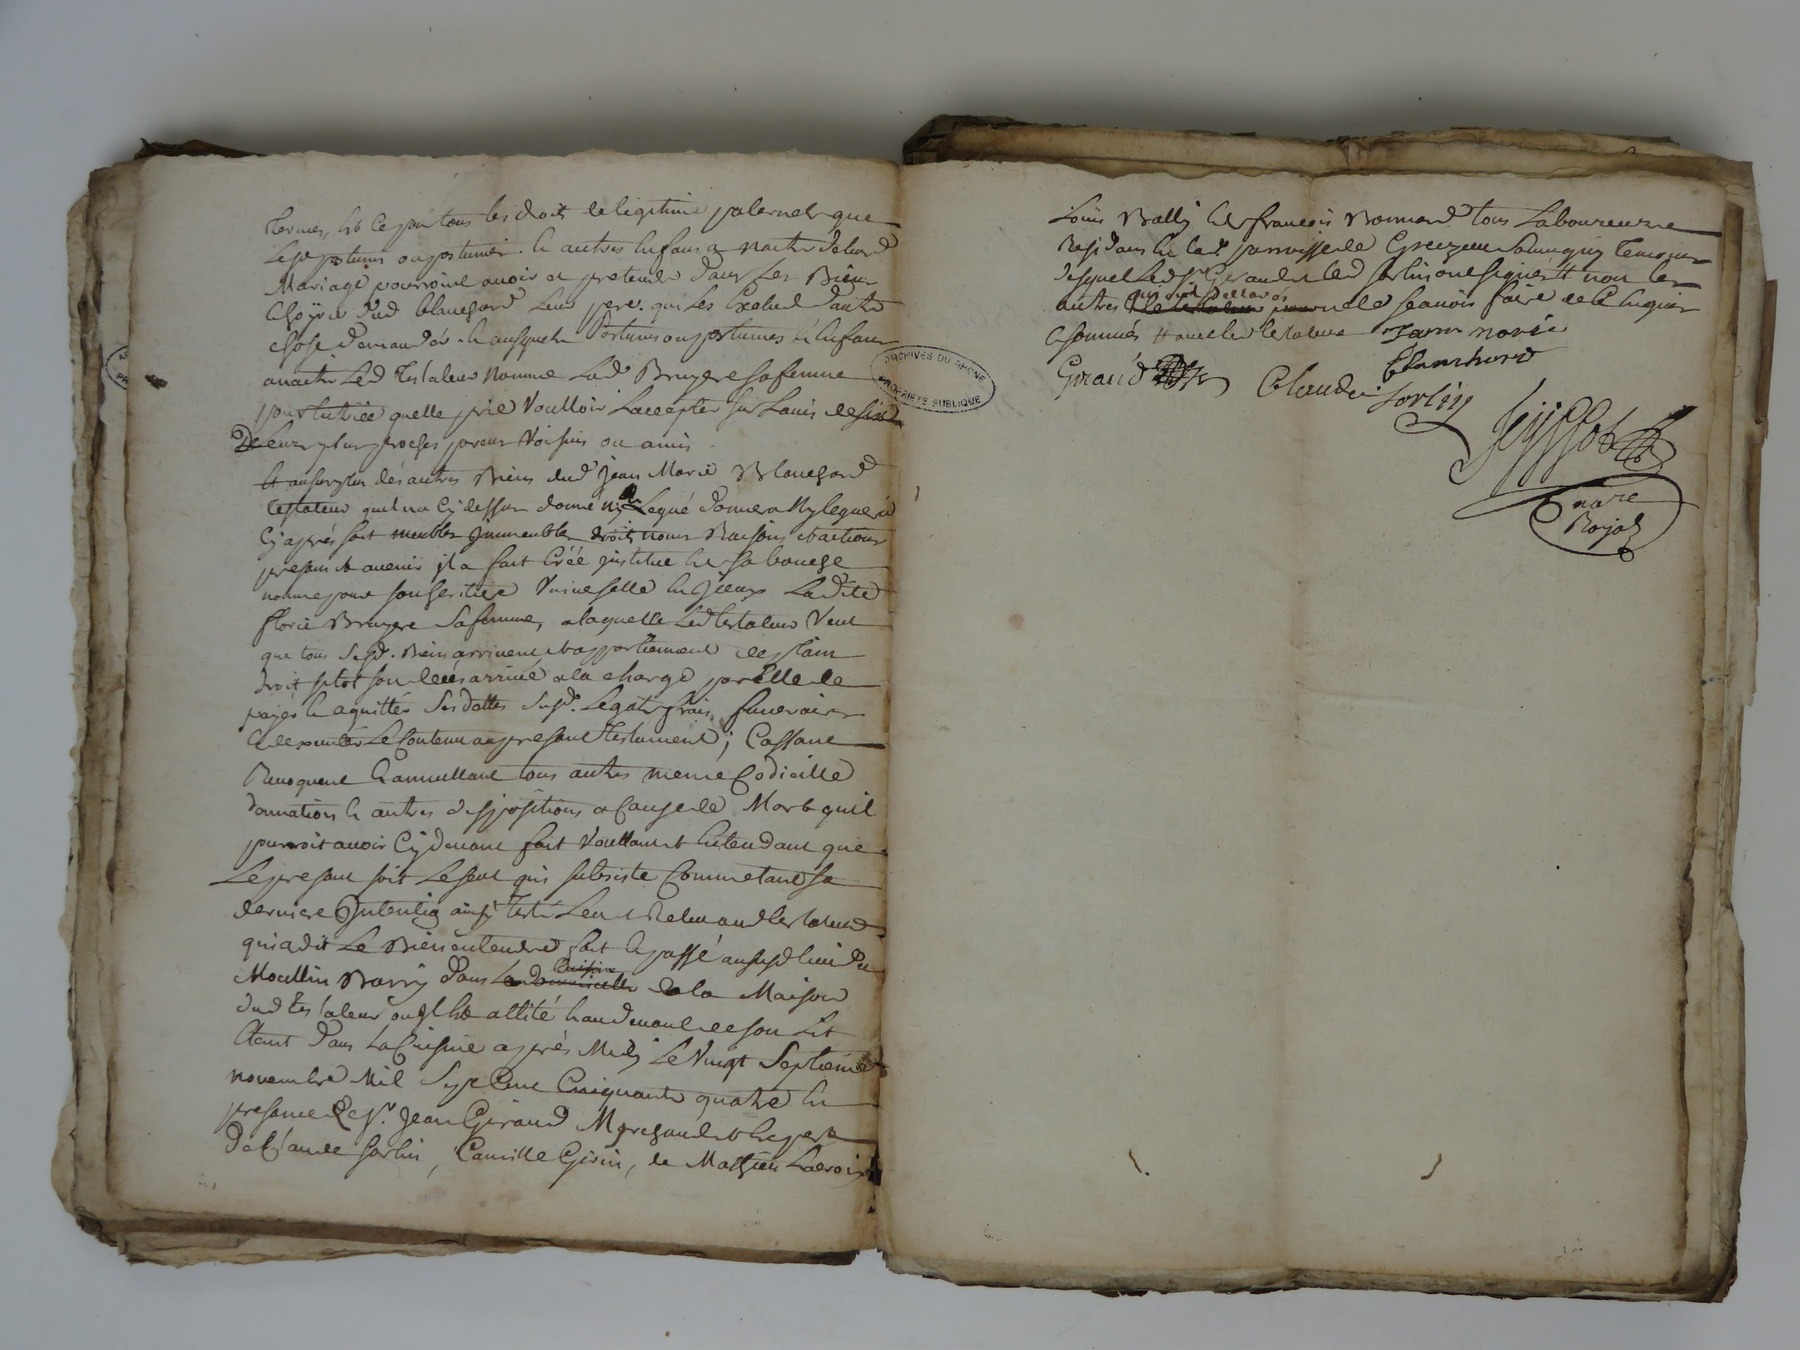 termes, et ce pour tous les droits de legitime paternels que
lesd postumes ou postumes et autres enfans a naitre deleurd
Mariage pourroint avoir et pretendre dans les Biens
hoyrie dud blanchard leur pere qui les Exclud d'autre
chose demander et ausquels Postumes ou postumes et enfans
a naitre led testateur nomme lad Bruyere sa femme
pour tutrice quelle prie voulloir l'accepter sur l'avis de six
De leurs plus proches parens voisins ou amis
Et au surplus des autres Biens dud Jean Marie Blanchard
testateur quil n'a cy dessus donné ny Legué donnera ny leguera
cy après soit meubles immeubles droits noms Raisons et actions
presens et avenir il a fait créé institue et de sa bouche
nommé pour son heritiere universelle en iceux Ladite
florie Bruyere sa femme, a laquelle led testateur veut
que tous sesd. Biens arrivent et appartiennent de plain
droit sitot son deces arrivé a la charge par elle de
payer et aquitter ses dettes susd. Legats frais funeraires
et dexecuter le contenu au present testament; Cassant
Revoquant et annullant tous autres meme Codicille
donnations et autres dispositions a Cause de Mort quil
pourroit avoir cydevant fait voullant et entendant que
Le present soit le seul qui subsiste comme etant sa
derniere intention ainsy testé leu et Releu aud testateur
qui a dit le bien entendre fait et passé au susd lieu du
Cuisine
Moullin Barry dans la de la Maison
dud testateur ou il est allité et au devant de son lit
étant dans la Cuisine après Midy Le vingt septieme
novembre Mil sept cent Cinquante quatre en
presence de sr. Jean Giraud Marchand et
de Claude Sorlin, Camille Girin, de Mathieu Lacroix
Louis Bally et francois Bonnard tous Laboureurs
Residans en lad. parroisse de temoins
desquels Led sr. Giraud et led Sorlin ont signés et non les
qui ont dellarés
autres ne scavoir faire de ce enquis
et sommés avec led testateur Jean marie
blanchard
Giraud Claude Sorlin
nore
Royal
ARCHIVES DU RHONE
PROPRIETE PUBLIQUE